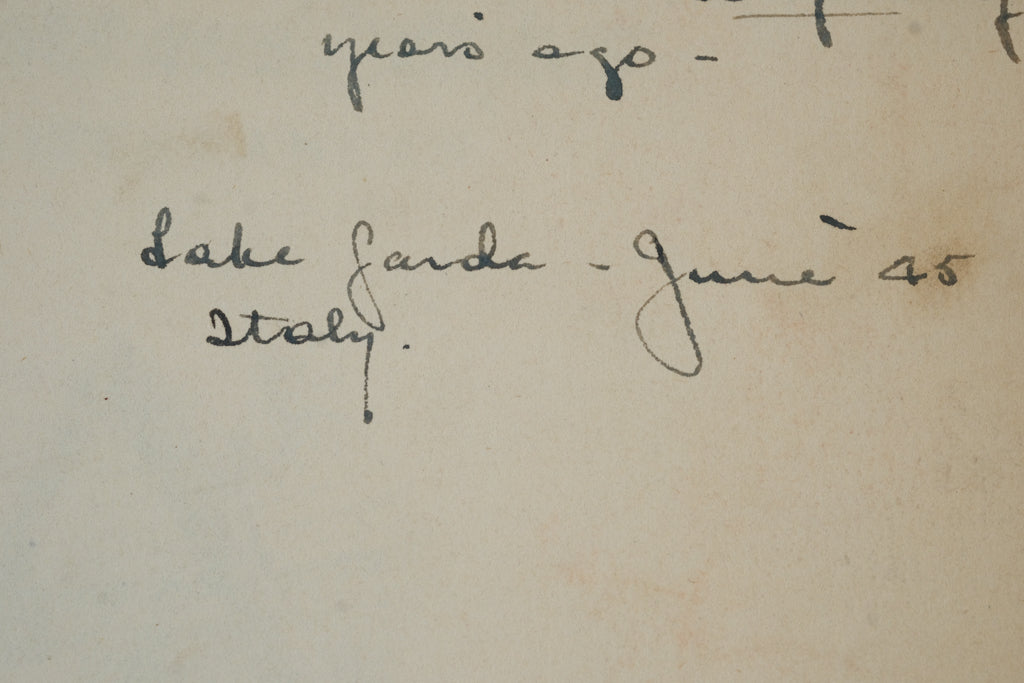 years ago -
Lake Garda - June '45
Italy.